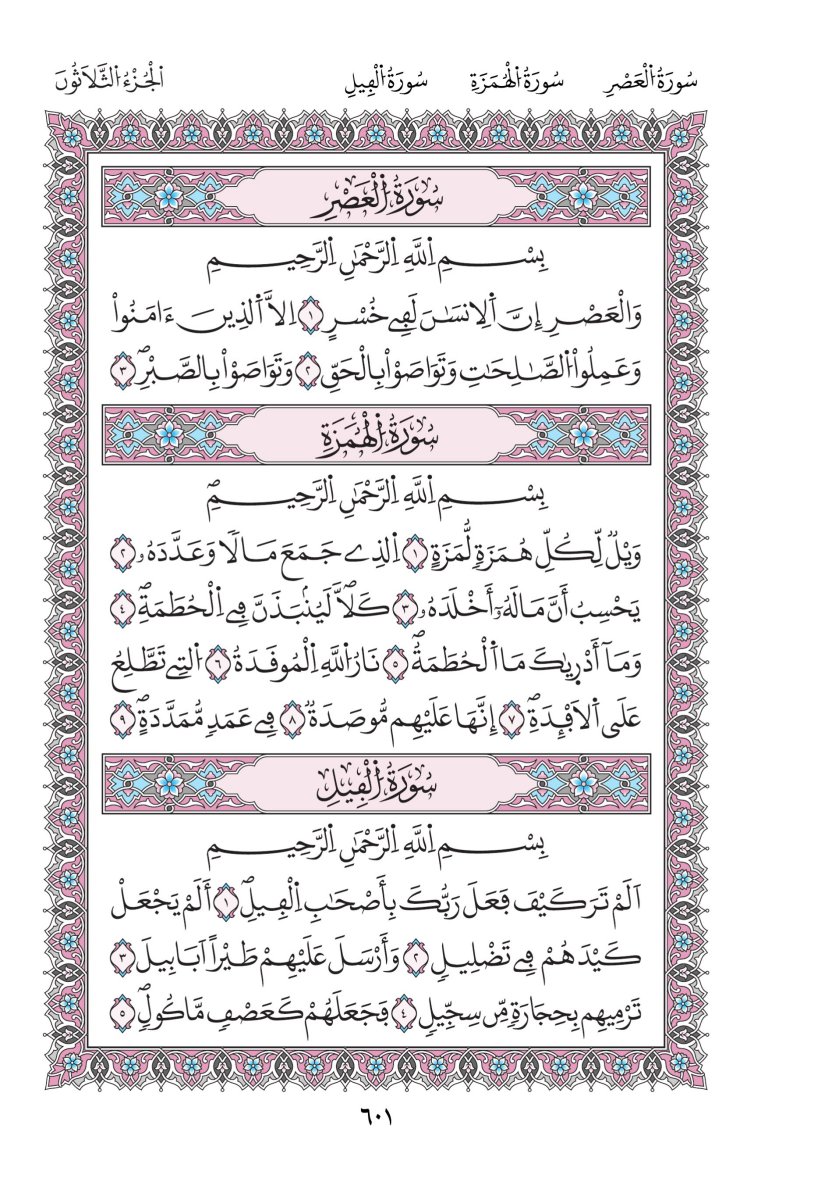 سُورَةُ اُ۬لْعَصْرِ سُورَةُ اُ۬لْهُمَزَةِ سُورَةُ اُ۬لْفِيلِ اَ۬لْجُزْءُ اُ۬لثَّلَاثُونَ
سُورَةُ اُ۬لْعَصْرِ
بِسْمِ اِ۬للَّهِ اِ۬لرَّحْمَٰنِ اِ۬لرَّحِيمِ
وَالْعَصْرِ إِنَّ اَ۬لِانسَٰنَ لَفِے خُسْرٍ ١ اِلَّا اَ۬لذِينَ ءَامَنُواْ
وَعَمِلُواْ اُ۬لصَّٰلِحَٰتِ وَتَوَاصَوْاْ بِالْحَقِّ ٢ وَتَوَاصَوْاْ بِالصَّبْرِۖ ٣
سُورَةُ اُ۬لْهُمَزَةِ
بِسْمِ اِ۬للَّهِ اِ۬لرَّحْمَٰنِ اِ۬لرَّحِيمِ
وَيْلٌ لِّكُلِّ هُمَزَةٍ لُّمَزَةٍ ١ اِ۬لذِے جَمَعَ مَالًا وَعَدَّدَهُۥ ٢
يَحْسِبُ أَنَّ مَالَهُۥٓ أَخْلَدَهُۥ ٣ كَلَّاۖ لَيُنۢبَذَنَّ فِے اِ۬لْحُطَمَةِۖ ٤
وَمَآ أَدْر۪يٰكَ مَا اَ۬لْحُطَمَةُۖ ٥ نَارُ اُ۬للَّهِ اِ۬لْمُوقَدَةُ ٦ اُ۬لتِے تَطَّلِعُ
عَلَى اَ۬لَافْـِٕدَةِۖ ٧ إِنَّهَا عَلَيْهِم مُّوصَدَةٌ ٨ فِے عَمَدٍ مُّمَدَّدَةٍۖ ٩
سُورَةُ اُ۬لْفِيلِ
بِسْمِ اِ۬للَّهِ اِ۬لرَّحْمَٰنِ اِ۬لرَّحِيمِ
اَلَمْ تَرَ كَيْفَ فَعَلَ رَبُّكَ بِأَصْحَٰبِ اِ۬لْفِيلِۖ ١ أَلَمْ يَجْعَلْ
كَيْدَهُمْ فِے تَضْلِيلٍ ٢ وَأَرْسَلَ عَلَيْهِمْ طَيْراً اَبَابِيلَ ٣
تَرْمِيهِم بِحِجَارَةٍ مِّن سِجِّيلٍ ٤ فَجَعَلَهُمْ كَعَصْفٍ مَّاكُولٍۖ ٥
٦٠١